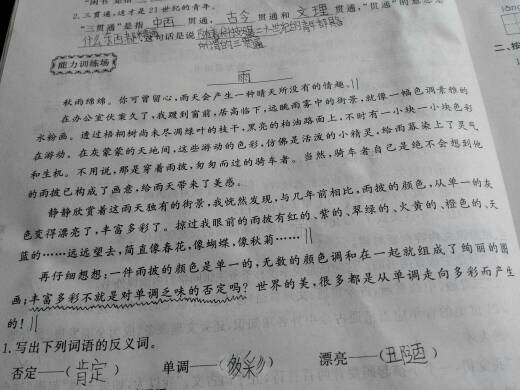 2.三贯通,这才是21世纪的青年。
"三贯通"是指 中西 贯通, 古今 贯通和 文理 贯通,"贯通"的意思是
这句话是说
能力训练场
雨
秋雨绵绵。你可曾留心,雨天会产生一种晴天所没有的情趣。
在办公室伏案久了,我踱到窗前,居高临下,远眺雨雾中的街景,就像一幅色调素雅的
水粉画。透过梧桐树尚未尽凋绿叶的枝干,黑亮的柏油路面上,不时有一小块一小块色彩
在游动。在灰蒙蒙的天地间,这些游动的色彩,仿佛是活泼的小精灵,给雨幕染上了灵气
和生机。不用说,那是穿着雨披,匆匆而过的骑车者。当然,骑车者自己是绝不会想到他
的雨披已构成了画意,给雨天带来了美感。
静静欣赏着这雨天独有的街景,我恍然发现,与几年前相比,雨披的颜色,从单一的灰
色变得漂亮了,丰富多彩了。掠过我眼前的雨披有红的、紫的、翠绿的、火黄的、橙色的、天
蓝的……远远望去,简直像春花,像蝴蝶,像秋菊……
再仔细想想:一件雨披的颜色是单一的,无数的颜色调和在一起就组成了绚丽的图
画;丰富多彩不就是对单调乏味的否定吗?世界的美,很多都是从单调走向多彩而产生
的!
1.写出下列词语的反义词。
否定——(肯定) 单调——(多彩) 漂亮——(丑陋)